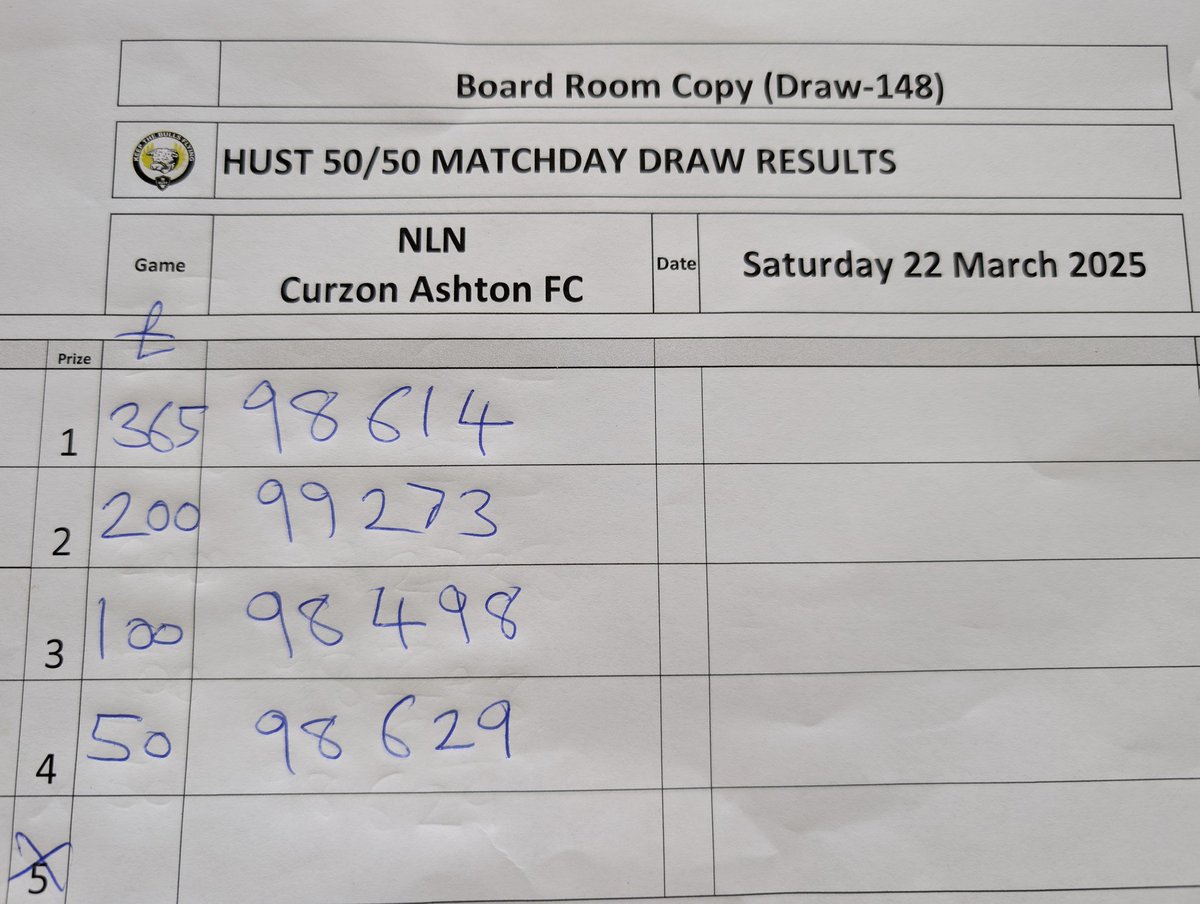 Board Room Copy (Draw-148)
KEEP THE BULLS FLYING
HUST 50/50 MATCHDAY DRAW RESULTS
Game
NLN
Curzon Ashton FC
Date
Saturday 22 March 2025
Prize £
1 365 98614
2 200 99273
3 100 98498
4 50 98629
5